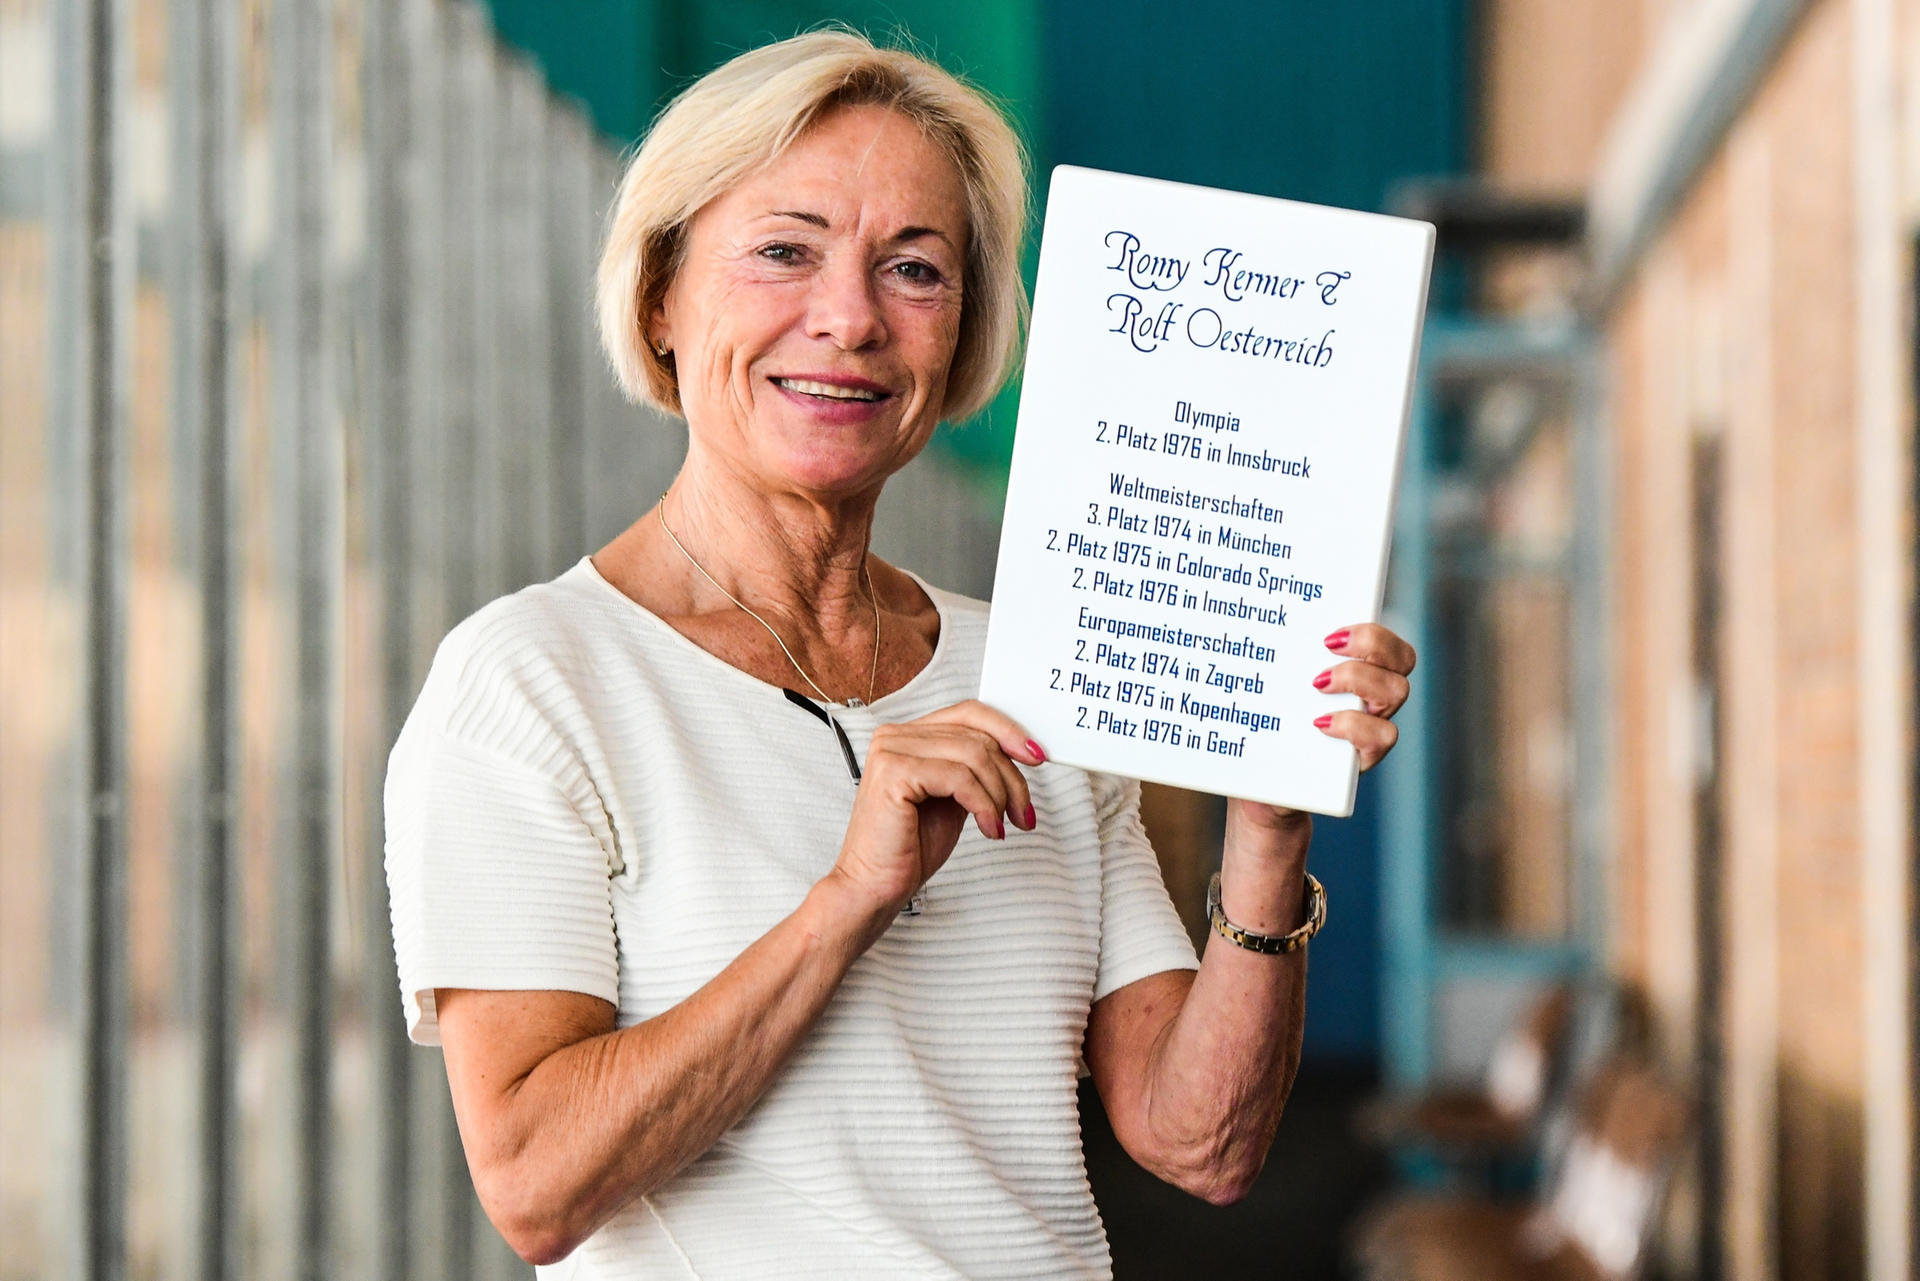 Romy Kermer &
Rolf Oesterreich
Olympia
2. Platz 1976 in Innsbruck
Weltmeisterschaften
3. Platz 1974 in München
2. Platz 1975 in Colorado Springs
2. Platz 1976 in Innsbruck
Europameisterschaften
2. Platz 1974 in Zagreb
2. Platz 1975 in Kopenhagen
2. Platz 1976 in Genf